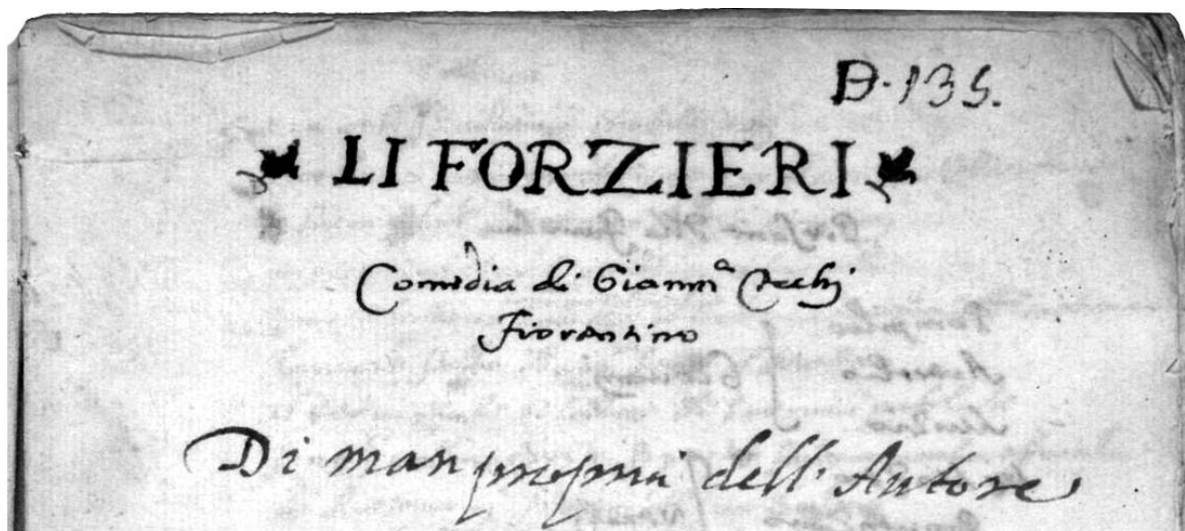 D. 135.
LI FORZIERI
Comedia di Gianmª Cecchi
Fiorentino
Di man propria dell' Autore